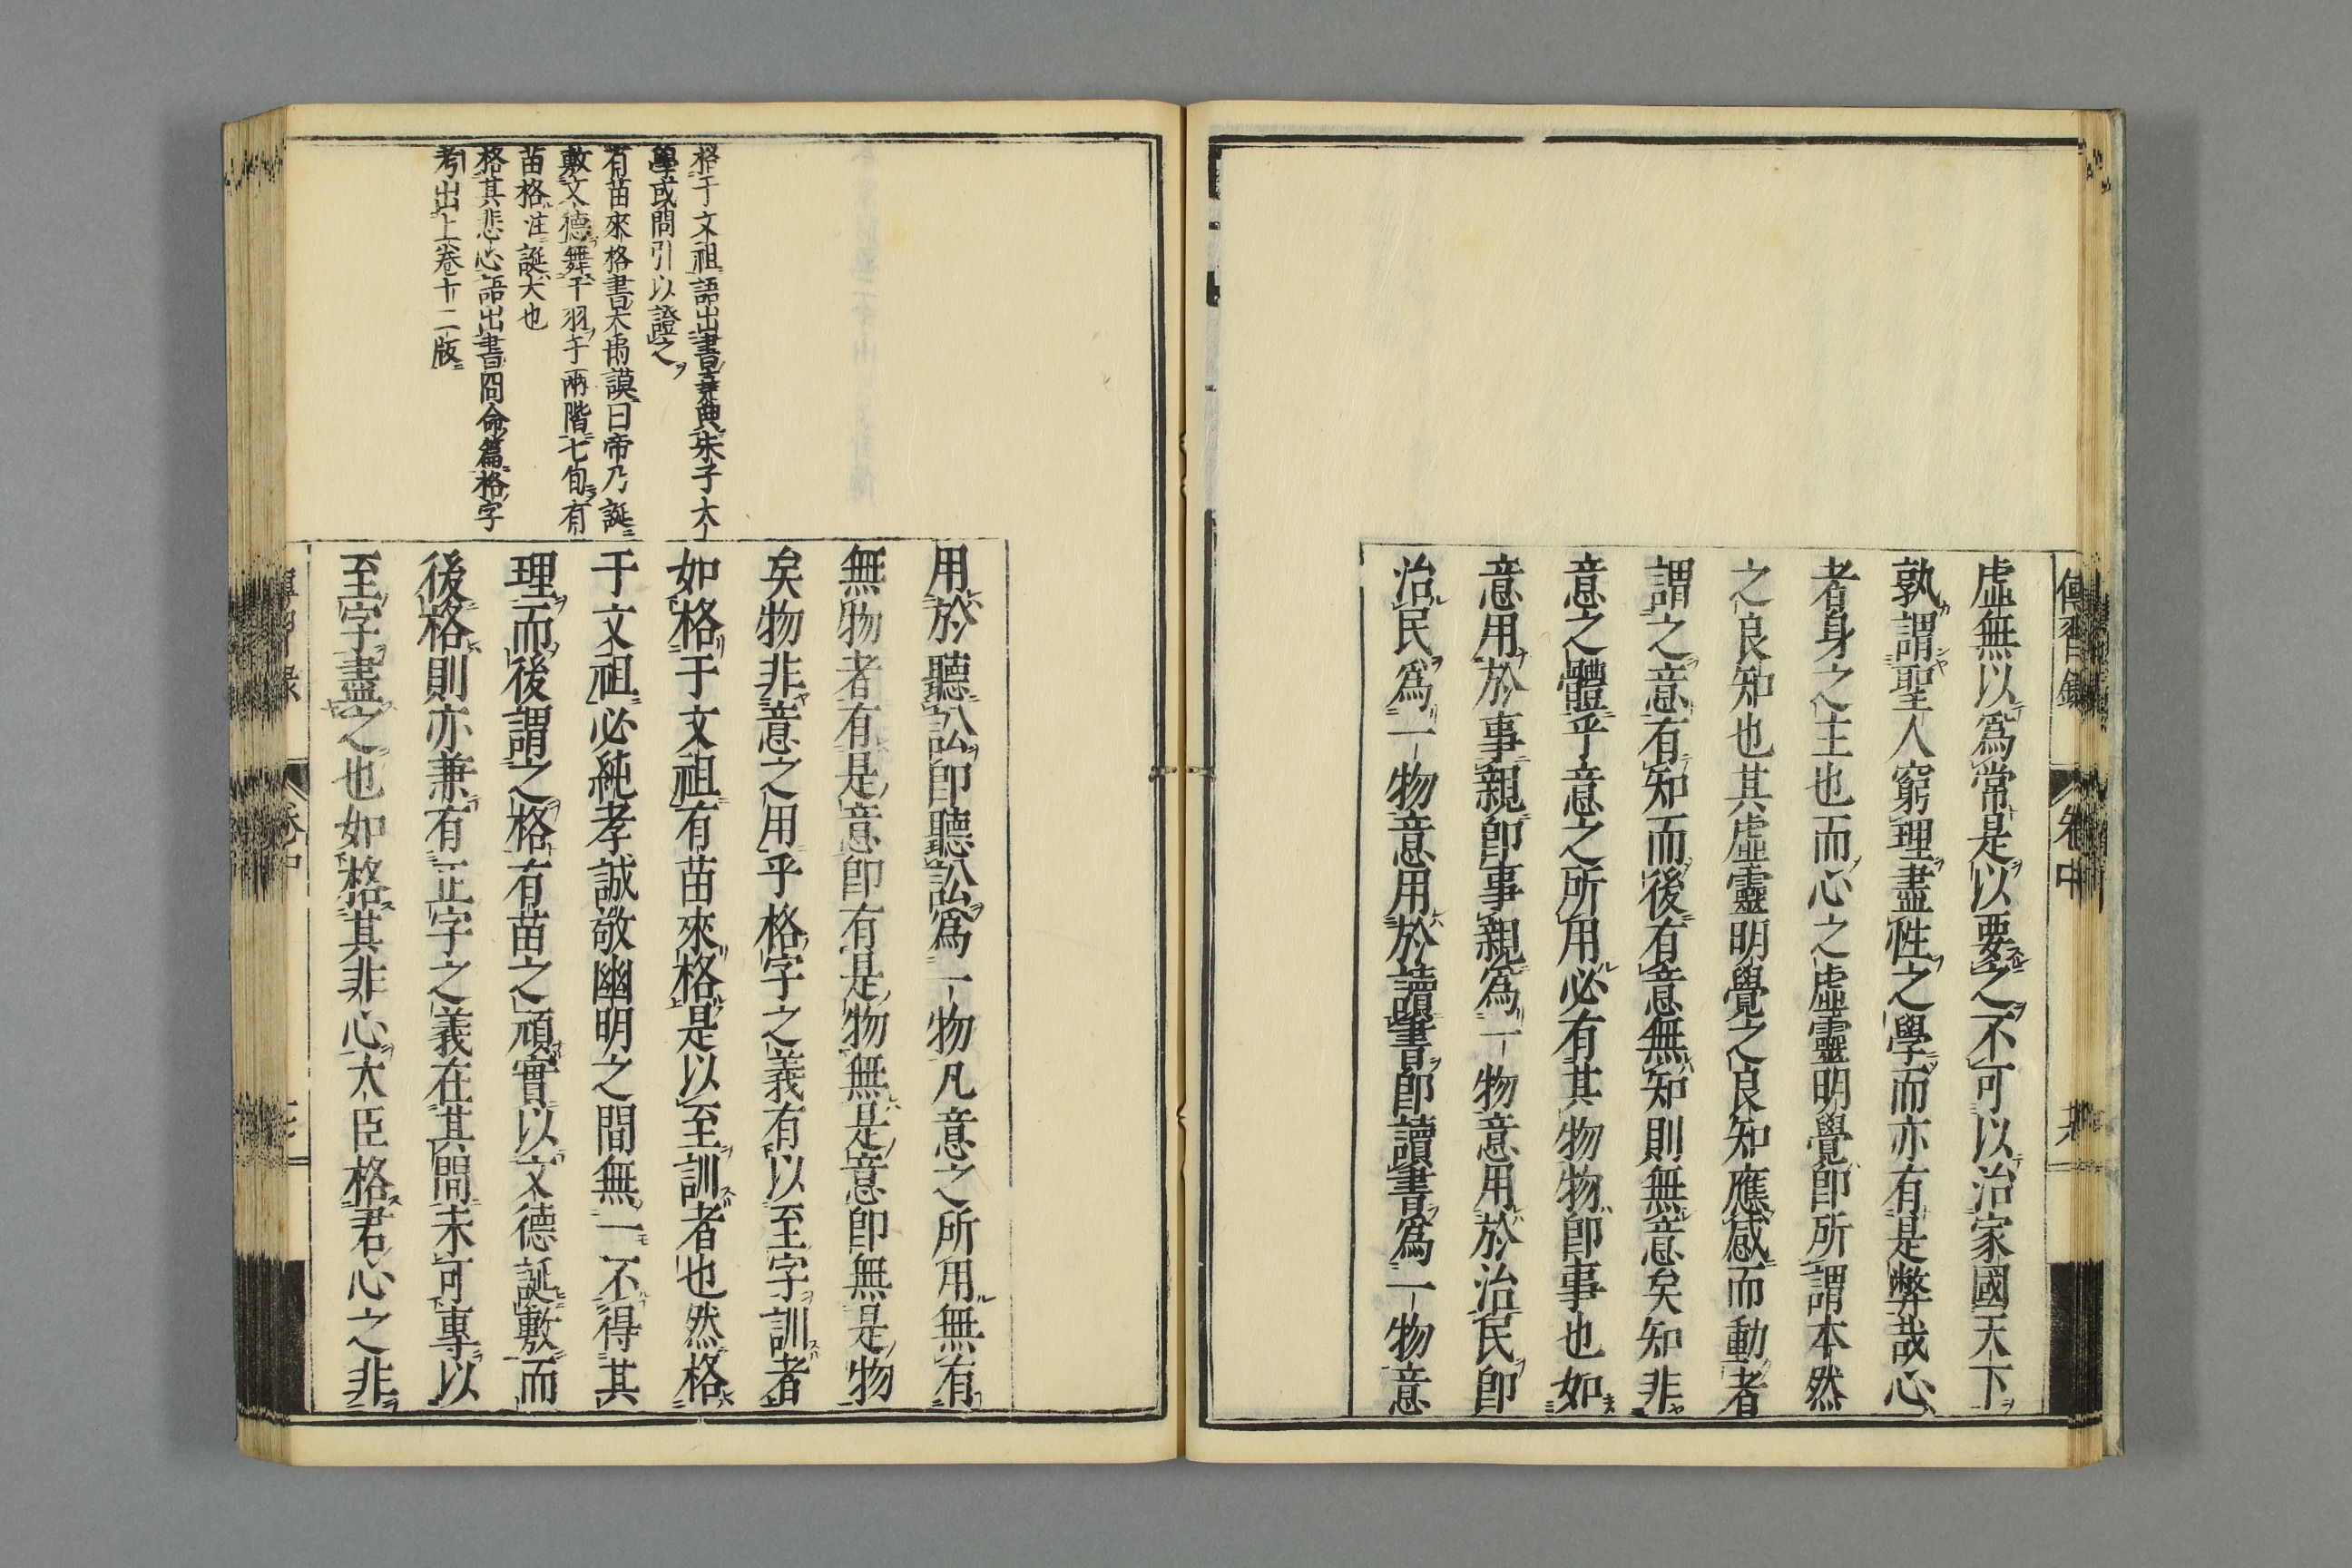 傳習錄 卷中
虛無以爲常是以要之不可以治家國天下
孰謂聖人窮理盡性之學而亦有是弊哉心
者身之主也而心之虛靈明覺卽所謂本然
之良知也其虛靈明覺之良知應感而動者
謂之意有知而後有意無知則無意矣知非
意之體乎意之所用必有其物物卽事也如
意用於事親卽事親爲一物意用於治民卽
治民爲一物意用於讀書卽讀書爲一物意
用於聽訟卽聽訟爲一物凡意之所用無有
無物者有是意卽有是物無是意卽無是物
矣物非意之用乎格字之義有以至字訓者
如格于文祖有苗來格是以至訓者也然格
于文祖必純孝誠敬幽明之間無一不得其
理而後謂之格有苗之頑實以文德誕敷而
後格則亦兼有正字之義在其間未可專以
至字盡之也如格其非心大臣格君心之非
格于文祖語出書堯典朱子大
學或問引以證之
有苗來格書大禹謨曰帝乃誕
敷文德舞干羽于兩階七旬有
苗格注誕大也
格其非心語出書冏命篇格字
考出上卷十二版
卷中